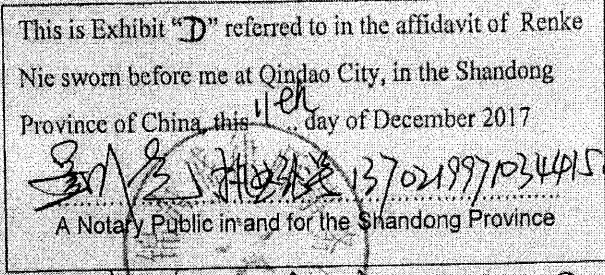 This is Exhibit “D” referred to in the affidavit of Renke
Nie sworn before me at Qindao City, in the Shandong
Province of China, this 11th day of December 2017
13702199710344150
A Notary Public in and for the Shandong Province